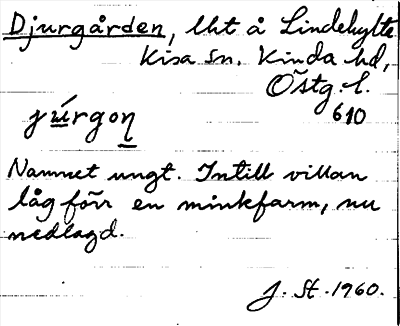 Djurgården, lht å Lindehylte
Kisa sn. Kinda hd,
Östg. l.
610
júrgoṇ
Namnet ungt. Intill villan
låg förr en minkfarm, nu
nedlagd.
J. St. 1960.